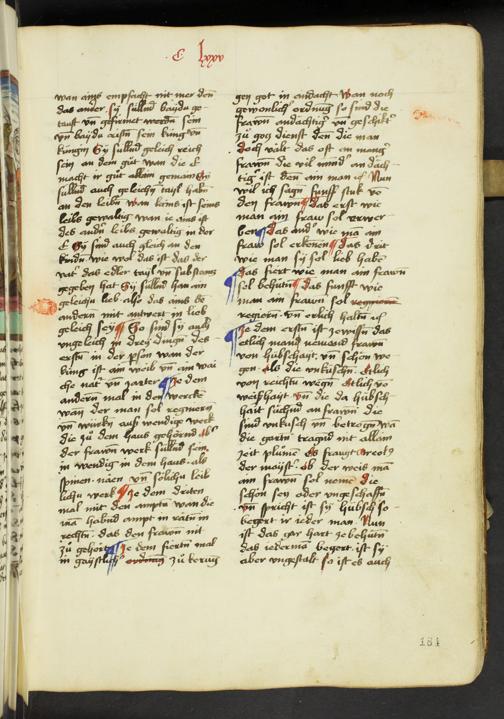 C lxxv
wan ains empfacht nit mer den
das ander Sy sullnd baydu ge-
taufft vn gefirmet werdn sein
vn baydu cristn sein kung vn
kungin Sy sullnd gelich reich
sein an dem gut wan die E
macht ir gut allain gemain Sy
sullnd auch gelichy tayl haben
an den kinden wan keins ist seins
leibs gewaltig wan ie ains ist
des andn leibs gewaltig in der
E Sy sind auch glich an den
kindn wie wol das ist das der
vat das edler tayl vn substanz
gegeben hat Sy sullnd han ain
gelichn lieb also das ains de
andern mit antwort in lieb
gelich sey So sind sy auch
vngelich in drey dingn des
erstn in der pson wan der
king ist am weib vn am wai
che nat vn zarter Ze dem
andern mal in den werckn
wan der man sol regniern
vn wurkn auss wendige werk
die zu dem haus gehornd Ab
der frawen werk sullnd sein
in wendig in dem haus als
spinen naen vn solichu leib
lichu werk Ze dem dritten
mal mit den amptn wan die
man habnd ampt in ratn in
rechtn das den frawn nit
zu gehort Ze dem fiertn mal
in gaystlichr ordnung zu kerung
gen got in andacht wan noch
gewonlichr ordnung so sind die
frawn andachtig vn geschikt
zu gog dienst den die man
Doch valt das oft an mang
frawn die vil mind an dach-
tig ist den ain man Nun
wil ich sagn funff stuk vo
den frawn das erst wie
man ain fraw sol erwer
ben das and wie ma ain
fraw sol erkenen das drit
wie man sy sol lieb habe
das fiert wie man ain frawn
sol behutn das funfft wie
man ain frawn sol regniern
regiern vn erlich haltn
Ze dem erstn ist zewissn das
etlich mand nemand frawn
von hubschayt vn schon we
gen Als die vnkuschn Etlich
von reichtu wegn Etlich vo
weisshayt vn die da hubsch-
hait suchnd an frawn die
sind vnkusch vn betrogn wan
die gartn tragnd nit allain
zeit plumen Es fraugt
der maist Ob der weis ma
ain frawn sol neme die
schon sey oder vngeschaffn
vn spricht ist sy hubsch so
begert ir ieder man Nun
ist das gar hart ze behutn
das iederma begert ist sy
aber vngestalt so ist es auch
184